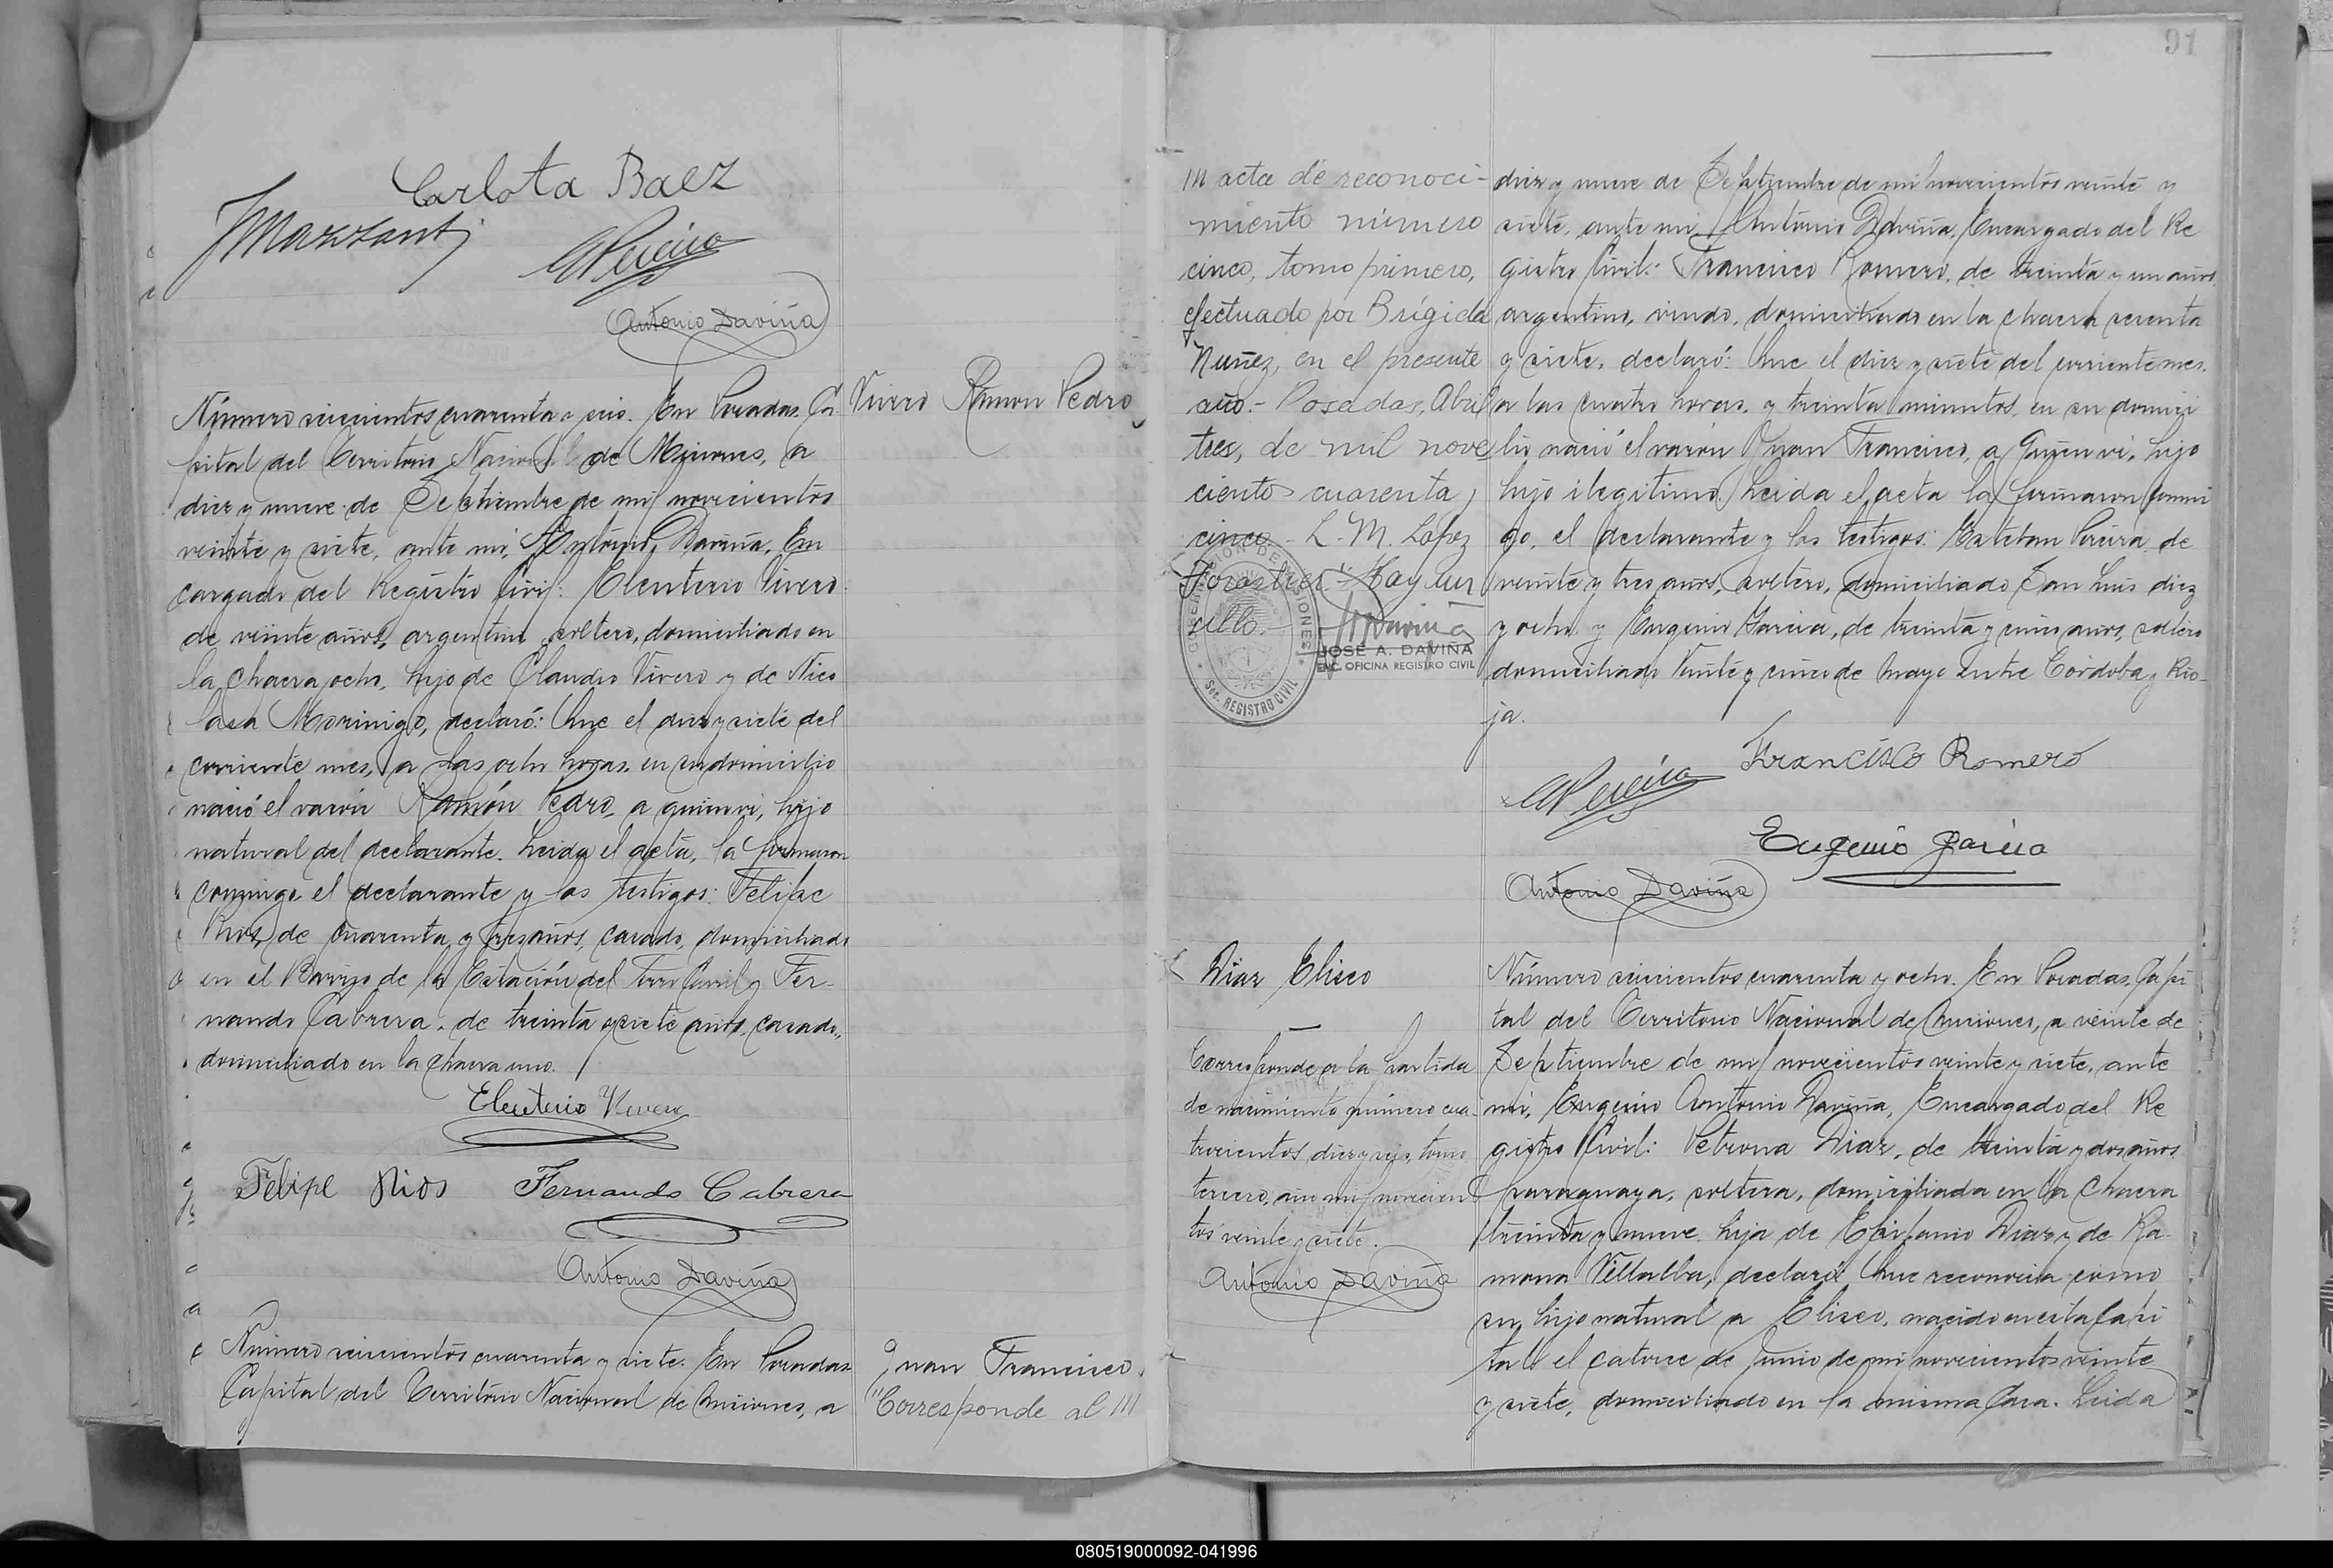 Carlota Baez
JMazzanti
EPereira
Antonio Daviña
Número seiscientos cuarenta y seis. En Posadas, Ca
pital del Territorio Nacional de Misiones, a
diez y nueve de Septiembre de mil novecientos
veinte y siete, ante mi, Antonio Daviña, En
cargado del Registro Civil: Eleuterio Vivero
de veinte años, argentino, soltero, domiciliado en
la chacra ocho, hijo de Claudio Vivero y de Nico
lasa Morinigo, declaró: Que el diez y siete del
corriente mes, a las ocho horas, en su domicilio
nació el varón Ramón Pedro, a quien vi, hijo
natural del declarante. Leida el acta, la firmaron
conmigo el declarante y los testigos: Felipe
Rios, de cuarenta y tres años, casado, domiciliado
en el Barrio de la Estación del Ferro Carril y Fer-
nando Cabrera, de treinta y siete años, casado,
domiciliado en la chacra uno.
Eleuterio Vivero
Felipe Rios Fernando Cabrera
Antonio Daviña
Número seiscientos cuarenta y siete. En Posadas
Capital del Territorio Nacional de Misiones, a
Vivero Ramon Pedro
Juan Francisco.
"Corresponde al ///
91
/// acta de reconoci-
miento número
cinco, tomo primero,
efectuado por Brígida
Nuñez, en el presente
año.- Posadas, Abril
tres, de mil nove
cientos cuarenta y
cinco.- L. M. Lopez
Forastier" Hay un
sello.
JOSE A. DAVIÑA
ENC. OFICINA REGISTRO CIVIL
GOBERNACION DE MISIONES
Sec. REGISTRO CIVIL
diez y nueve de Septiembre de mil novecientos veinte y
siete, ante mi, Antonio Daviña, Encargado del Re
gistro Civil: Francisco Romero, de treinta y un años,
argentino, viudo, domiciliado en la chacra sesenta
y siete, declaró: Que el diez y siete del corriente mes,
a las cuatro horas, y treinta minutos, en su domici
lio nació el varón Juan Francisco, a quien vi, hijo
hijo ilegitimo. Leida el acta la firmaron conmi
go, el declarante y los testigos: Esteban Pereira, de
veinte y tres años, soltero, domiciliado San Luis diez
y ocho y Eugenio Garcia, de treinta y cinco años, soltero
domiciliado Veinte y cinco de Mayo entre Córdoba y Rio-
ja.
Francisco Romero
EPereira
Eugenio Garcia
Antonio Daviña
Diaz Eliseo
Corresponde a la partida
de nacimiento número cua
trocientos diez y seis, tomo
tercero, año mil novecien
tos veinte y siete.
Antonio Daviña
Número seiscientos cuarenta y ocho. En Posadas, Capi
tal del Territorio Nacional de Misiones, a veinte de
Septiembre de mil novecientos veinte y siete, ante
mi, Eugenio Antonio Daviña, Encargado del Re
gistro Civil: Petrona Diaz, de treinta y dos años
paraguaya, soltera, domiciliada en la chacra
treinta y nueve, hija de Epifanio Diaz y de Ra-
mona Villalba, declaró: Que reconocia como
su hijo natural a Eliseo, nacido en esta Capi
tal el catorce de Junio de mil novecientos veinte
y siete, domiciliado en la misma casa. Leida